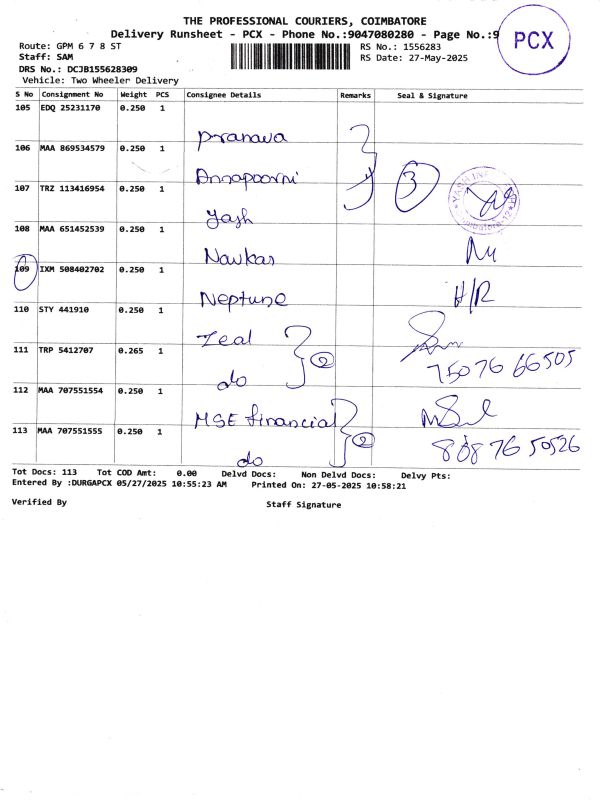 THE PROFESSIONAL COURIERS, COIMBATORE
Delivery Runsheet - PCX - Phone No.:9047080280 - Page No.:9
PCX
Route: GPM 6 7 8 ST
RS No.: 1556283
Staff: SAM
RS Date: 27-May-2025
DRS No.: DCJB155628309
Vehicle: Two Wheeler Delivery
S No Consignment No Weight PCS Consignee Details Remarks Seal & Signature
105 EDQ 25231170 0.250 1 Pranava
106 MAA 869534579 0.250 1 Annapoorni 3
107 TRZ 113416954 0.250 1 Yash
108 MAA 651452539 0.250 1 Navkar
109 IXM 508402702 0.250 1 Neptune H/R
110 STY 441910 0.250 1 Zeal 2
111 TRP 5412707 0.265 1 do 75076 66505
112 MAA 707551554 0.250 1 MSE financial 2
113 MAA 707551555 0.250 1 do
Tot Docs: 113 Tot COD Amt: 0.00 Delvd Docs: Non Delvd Docs: Delvy Pts:
Entered By :DURGAPCX 05/27/2025 10:55:23 AM Printed On: 27-05-2025 10:58:21
Verified By
Staff Signature